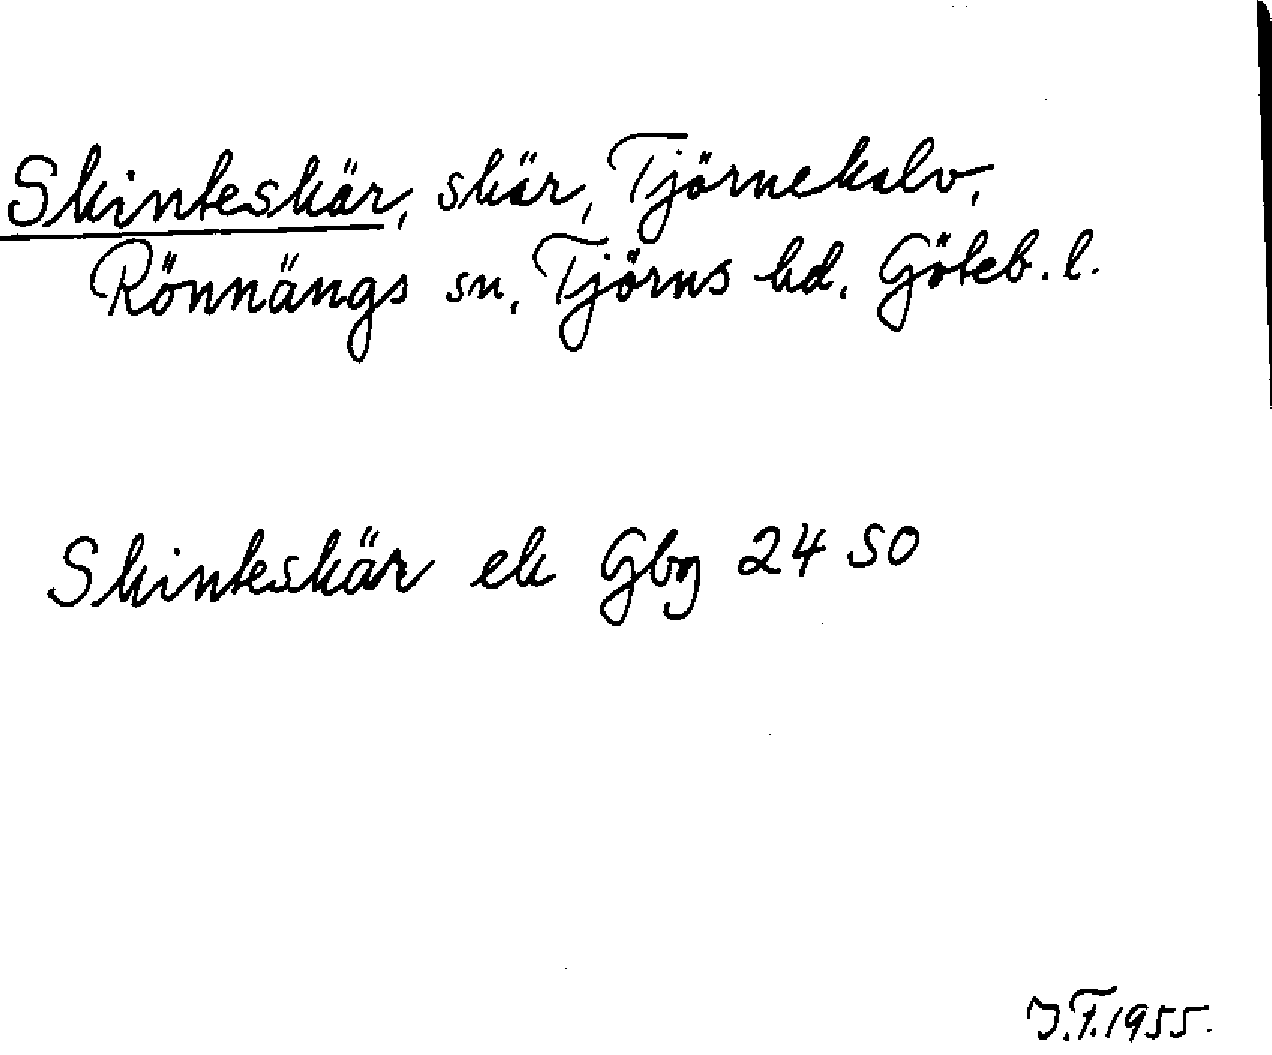 Skinteskär, skär, Tjörnekalv,
Rönnängs sn, Tjörns hd, Göteb. l.
Skinteskär ek Gbg 24 SO
J.F. 1955.